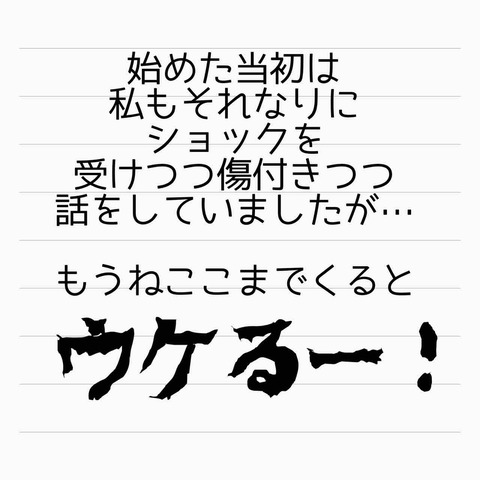 始めた当初は
私もそれなりに
ショックを
受けつつ傷付きつつ
話をしていましたが…
もうねここまでくると
ウケるー！